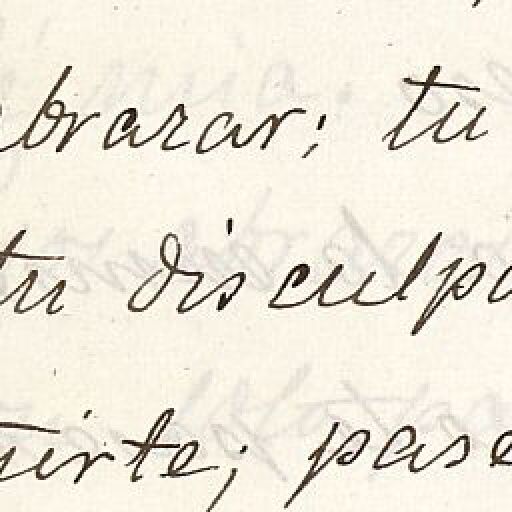 brazar; tu
tu disculpa
uirte; pase